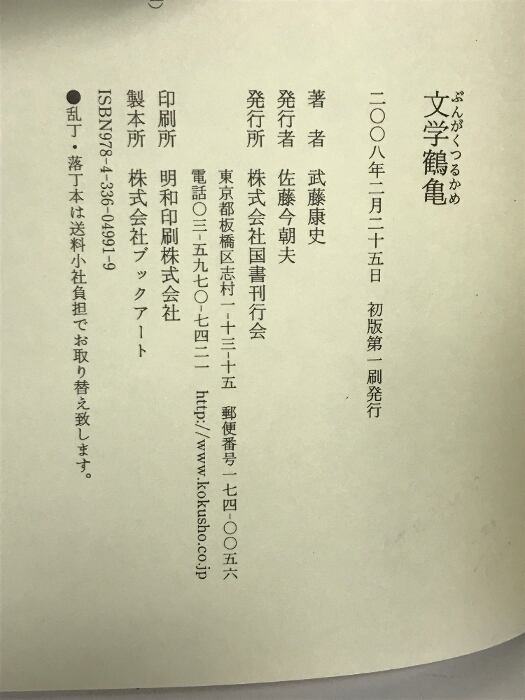 ぶんがくつるかめ
文学鶴亀
二〇〇八年二月二十五日 初版第一刷発行
著者 武藤康史
発行者 佐藤今朝夫
発行所 株式会社国書刊行会
東京都板橋区志村一-十三-十五 郵便番号一七四-〇〇五六
電話〇三-五九七〇-七四二一 http://www.kokusho.co.jp
印刷所 明和印刷株式会社
製本所 株式会社ブックアート
ISBN978-4-336-04991-9
●乱丁・落丁本は送料小社負担でお取り替え致します。